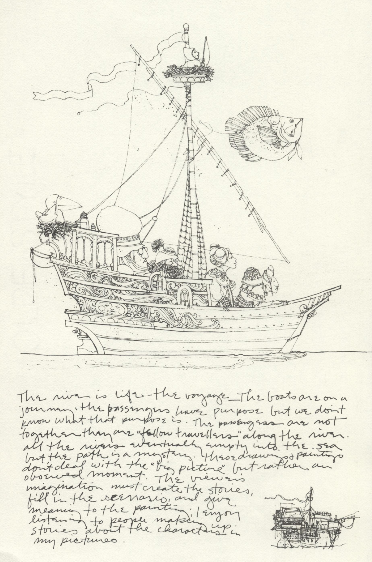 The river is life - the voyage - The boats are on a
journey, the passengers have purpose but we don't
know what that purpose is. The passengers are not
together they are "fellow travellers" along the river.
all the rivers eventually empty into the sea
but the path is a mystery. These drawings & paintings
don't deal with the "big picture" but rather an
observed moment. The viewers
imagination must create the stories,
fill in the scenario, and give
meaning to the painting; I enjoy
listening to people making up
stories about the characters in
my pictures.